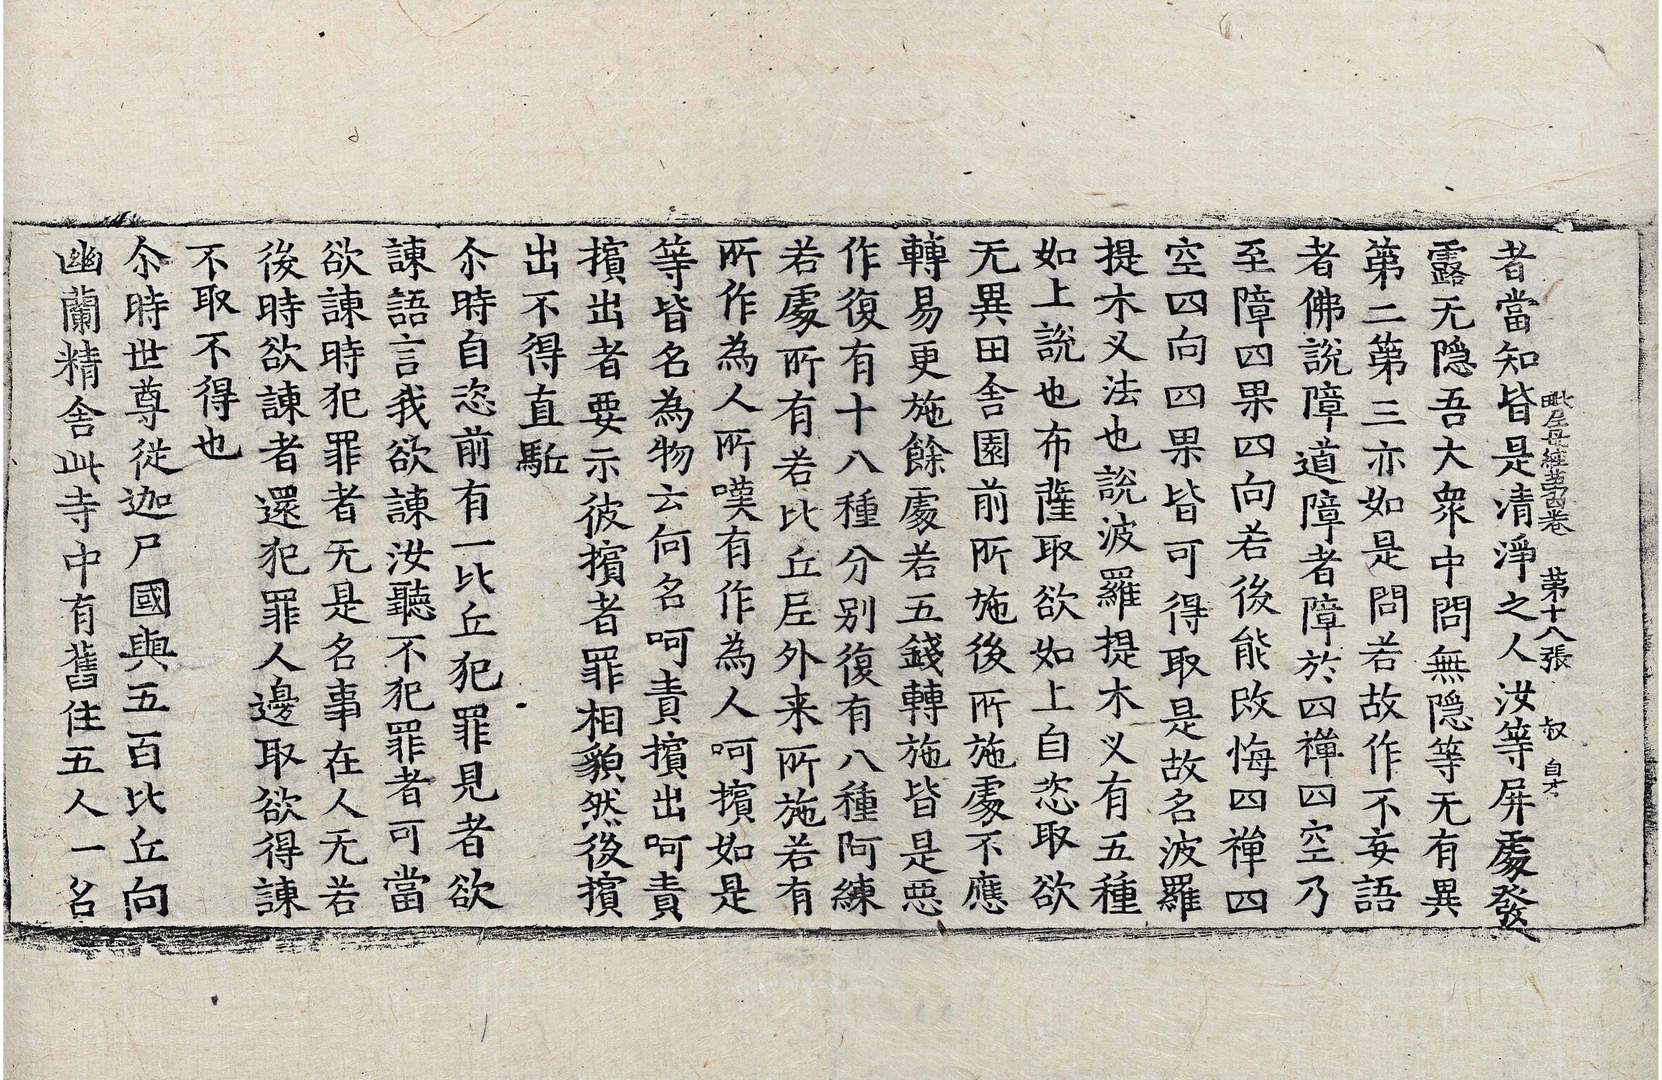 毗尼母經第四卷 第十八張 叔 自才
者當知皆是清淨之人汝等屏處發
露无隱吾大衆中問無隱等无有異
第二第三亦如是問若故作不妄語
者佛說障道障者障於四禪四空乃
至障四果四向若後能改悔四禪四
空四向四果皆可得取是故名波羅
提木叉法也說波羅提木叉有五種
如上說也布薩取欲如上自恣取欲
无異田舍園前所施後所施處不應
轉易更施餘處若五錢轉施皆是惡
作復有十八種分别復有八種阿練
若處所有若比丘尼外来所施若有
所作為人所嘆有作為人呵擯如是
等皆名為物云何名呵責擯出呵責
擯出者要示彼擯者罪相貌然後擯
出不得直駈
尒時自恣前有一比丘犯罪見者欲
諫語言我欲諫汝聽不犯罪者可當
欲諫時犯罪者无是名事在人无若
後時欲諫者還犯罪人邊取欲得諫
不取不得也
尒時世尊從迦尸國與五百比丘向
幽蘭精舍此寺中有舊住五人一名